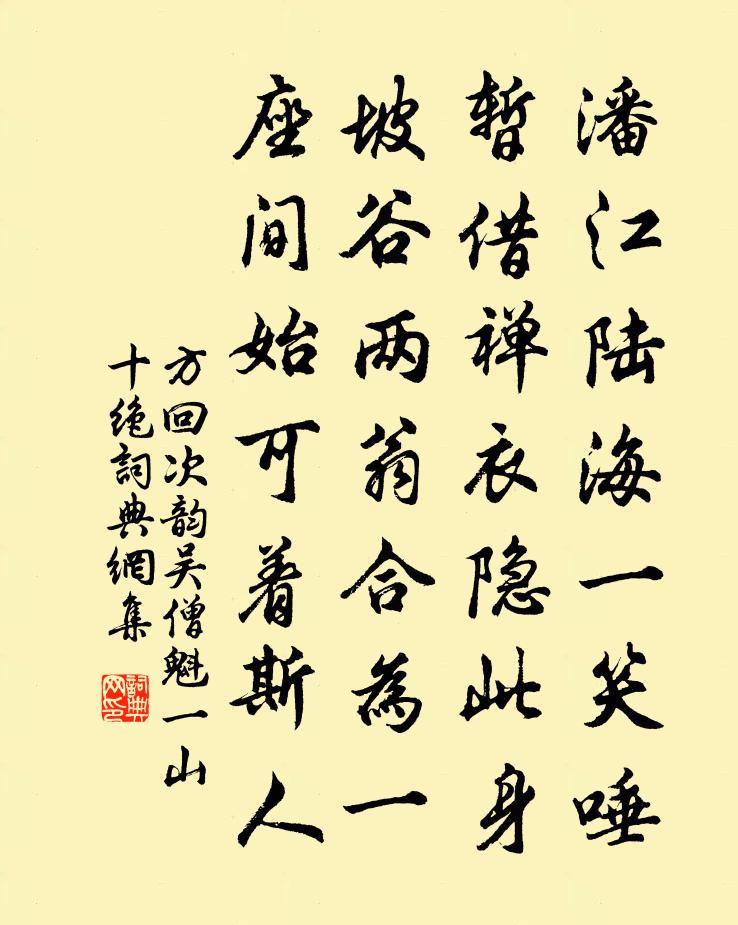 潘江陆海一笑唾
暂借禅衣隐此身
坡谷两翁合為一
座间始可着斯人
方回次韵吴僧魁一山
十绝詞典網集
詞典网印